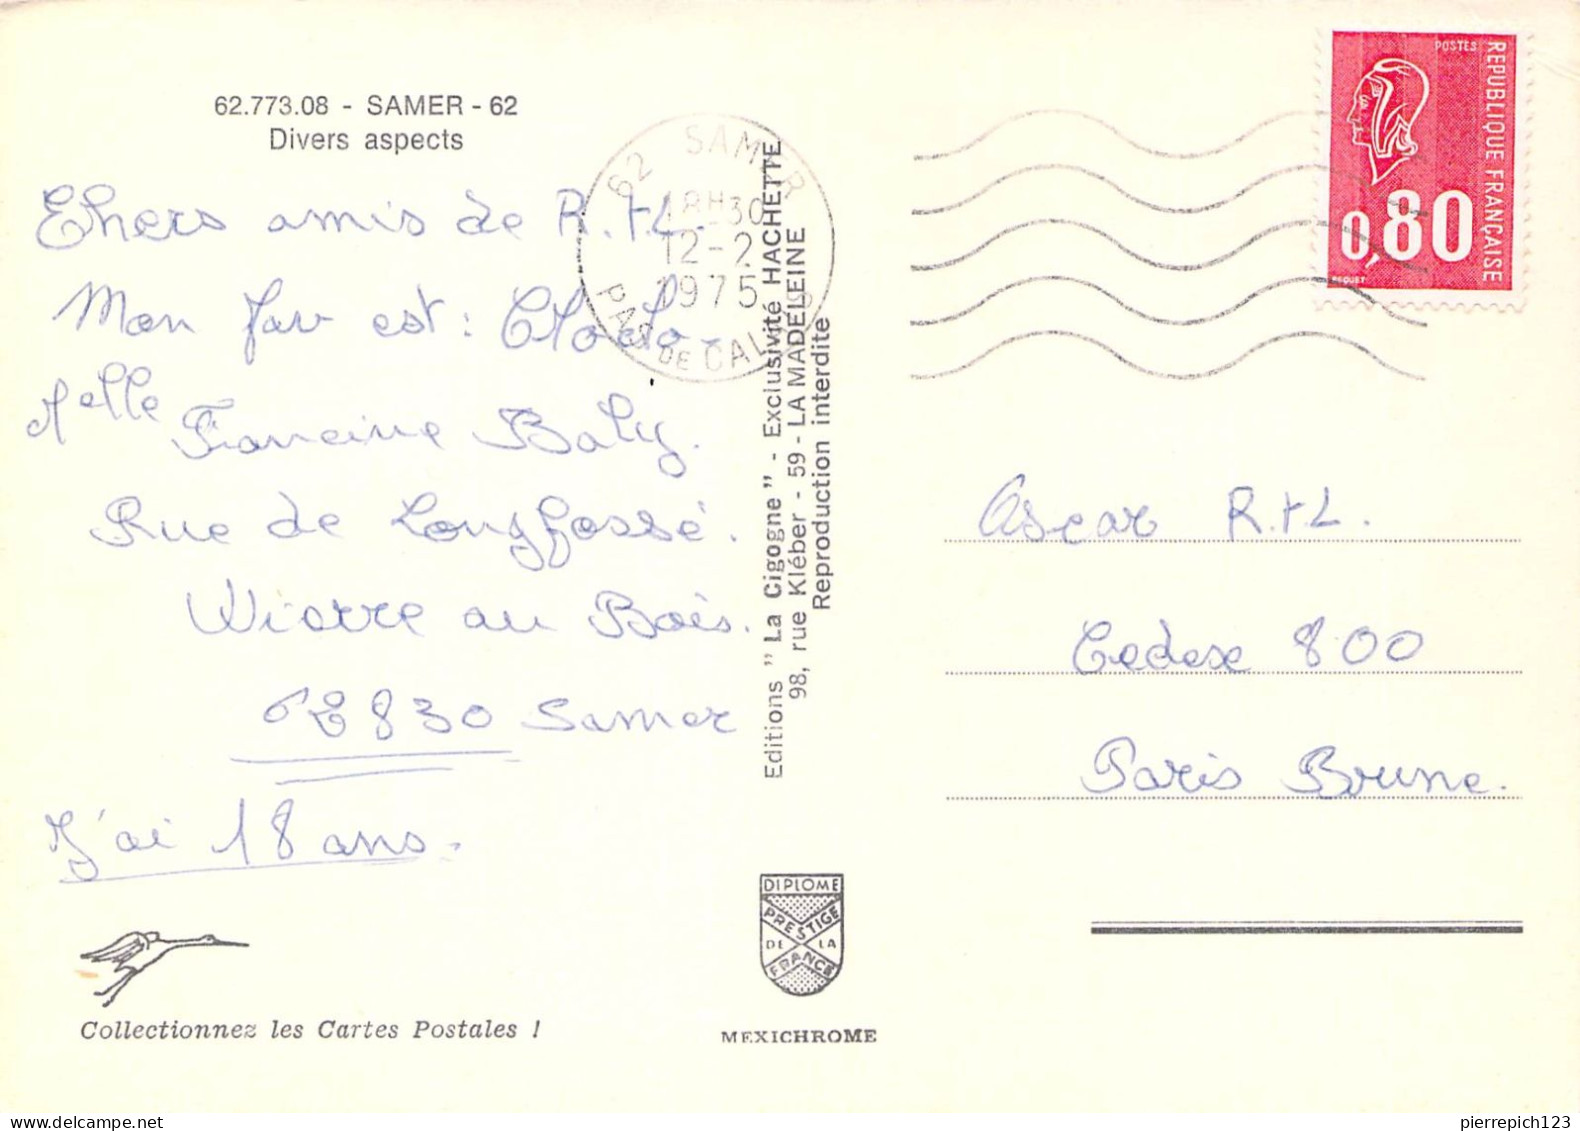 62.773.08 - SAMER - 62
Divers aspects
Chers amis de R.T.L.
Mon fav est : Cloclo.
Melle Francine Baly.
Rue de Longfossé.
Wierre au Bois.
62830 Samer
J'ai 18 ans.
Collectionnez les Cartes Postales !
62 SAMER
18H30
12-2
1975
PAS DE CALAIS
Editions " La Cigogne " - Exclusivité HACHETTE
98, rue Kléber - 59 - LA MADELEINE
Reproduction interdite
DIPLOME
PRESTIGE
DE LA
FRANCE
MEXICHROME
POSTES
REPUBLIQUE FRANÇAISE
0,80
BEQUET
Oscar R.T.L.
Cedex 800
Paris Brune.
pierrepich123